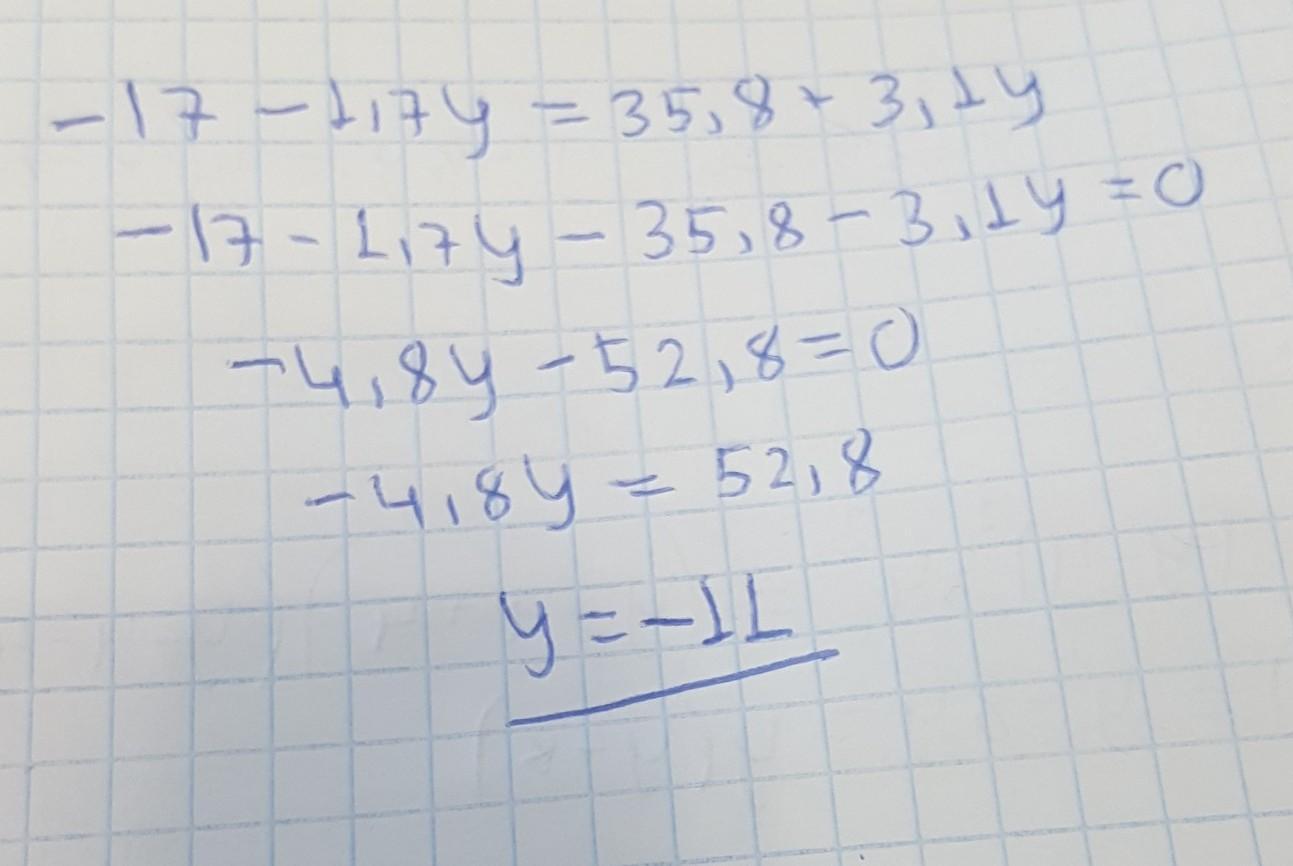 -17 - 1,7y = 35,8 + 3,1y
-17 - 1,7y - 35,8 - 3,1y = 0
-4,8y - 52,8 = 0
-4,8y = 52,8
y = -11